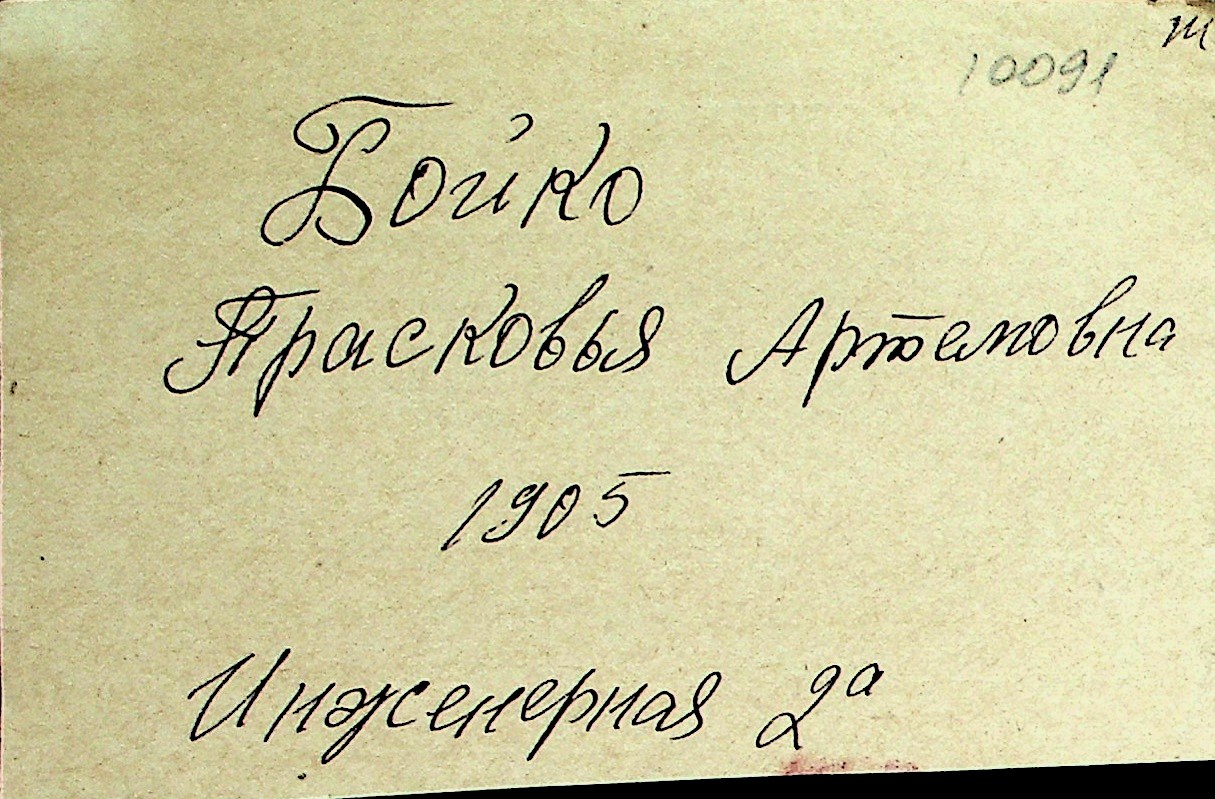 10091
Бойко
Прасковья Артемовна
1905
Инженерная 2а